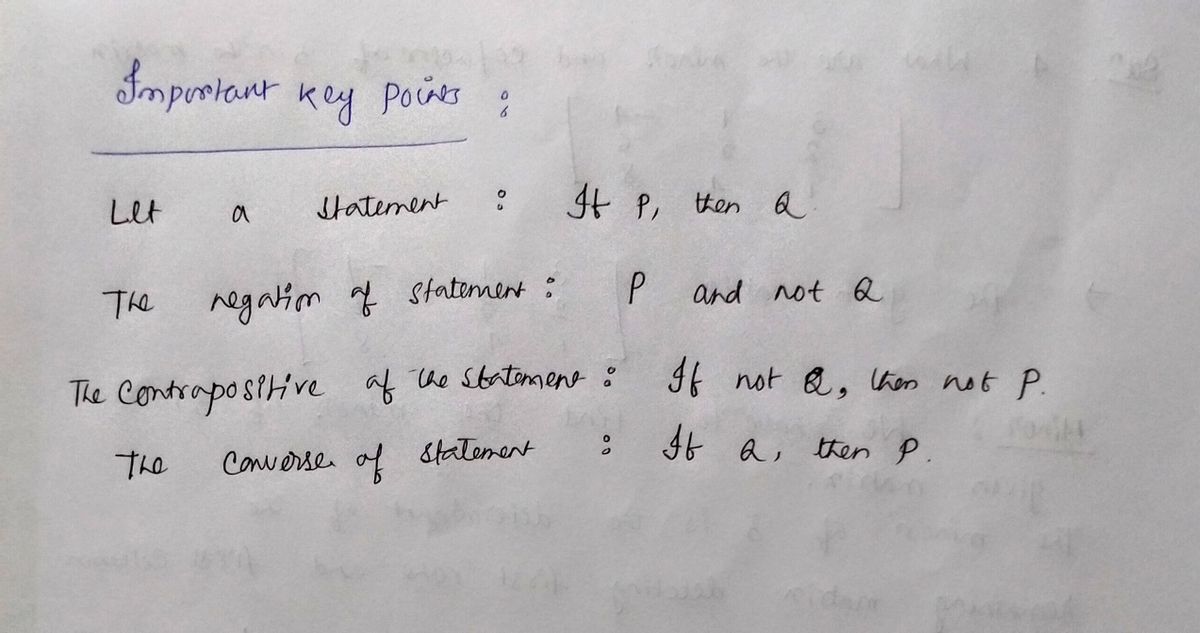 Important key points :
Let a statement : If P, then Q
The negation of statement : P and not Q
The Contrapositive of the statement : If not Q, then not P.
The Converse of statement : If Q, then P.